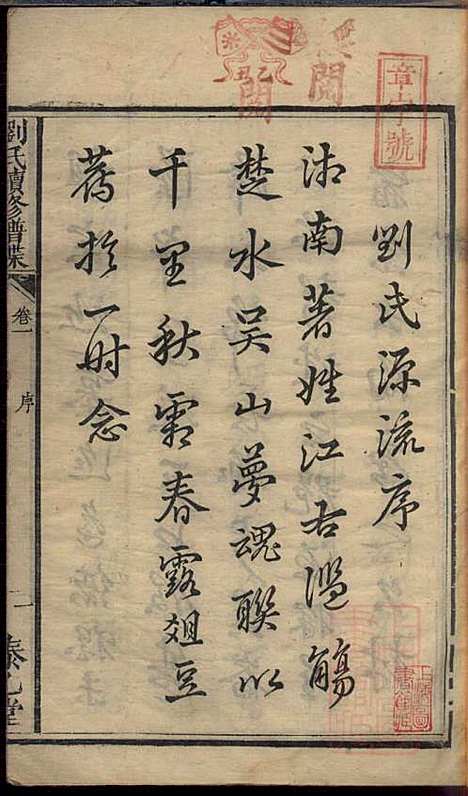 劉氏源流序
沩南著姓江右濫觴
楚水吴山夢魂聯以
千里秋霜春露俎豆
薦於一时念
劉氏續修譜牒
卷一
序
二
章字號
閱
閱